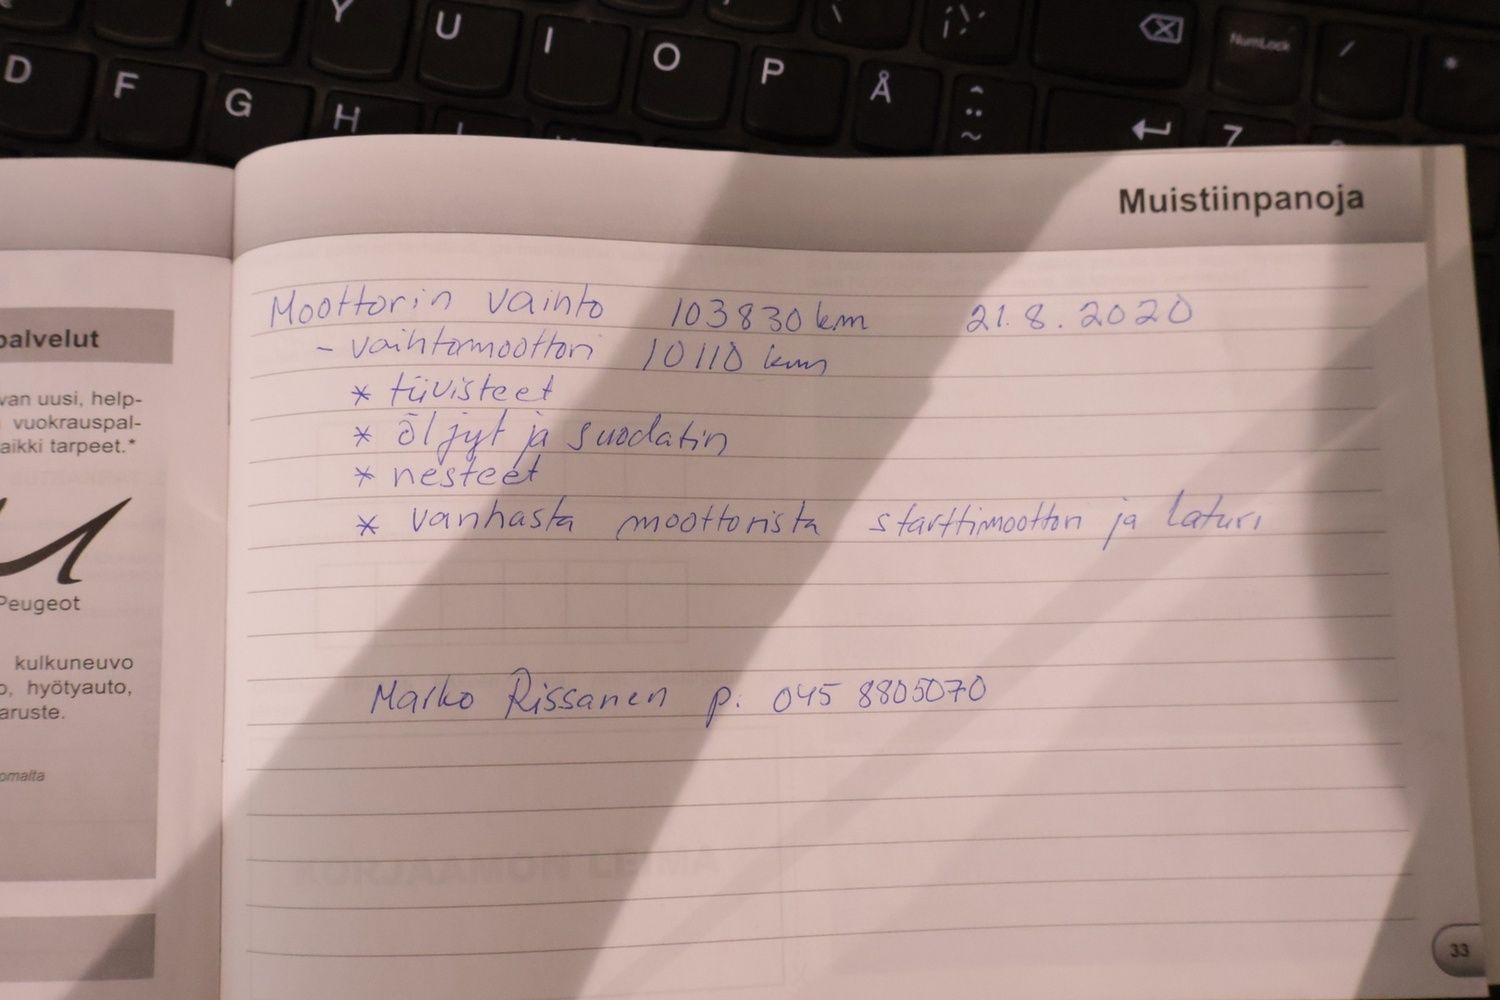 Y U I O P Å
D F G H
NumLock
/
*
7
Muistiinpanoja
Moottorin vaihto 103830 km 21.8.2020
- vaihtomoottori 10110 km
* tiivisteet
* öljyt ja suodatin
* nesteet
* vanhasta moottorista starttimoottori ja laturi
Marko Rissanen p. 045 8805070
KORJAAMON LEIMA
33
palvelut
van uusi, help-
vuokrauspal-
aikki tarpeet.*
Peugeot
kulkuneuvo
o, hyötyauto,
aruste.
omalta